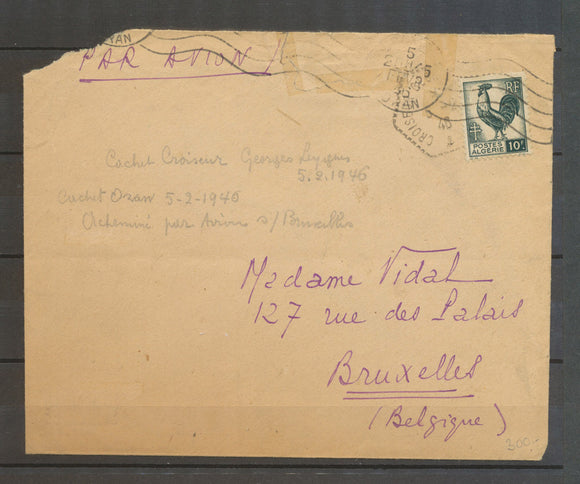 YAN
PAR AVION
5
CROISE
RF
POSTES
ALGERIE 10F
Cachet Croiseur Georges Leygues
5.2.1946
Cachet Ozan 5-2-1946
Acheminé par Avion s/ Bruxelles
Madame Vidal
127 rue des Palais
Bruxelles
(Belgique)
300